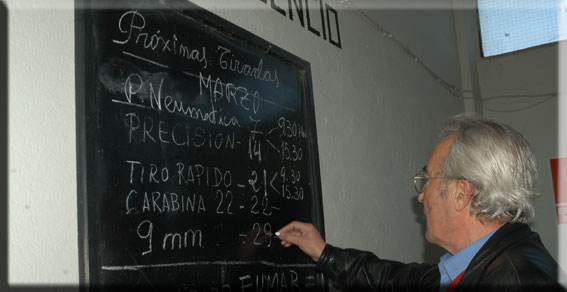 LENCIO
Próximas Tiradas
MARZO
P. Neumatica 7 < 9.30
PRECISION - 14 < 15.30
TIRO RAPIDO - 21 < 9.30 15.30
CARABINA 22 = 22 -
9 mm - 29
FUMAR =